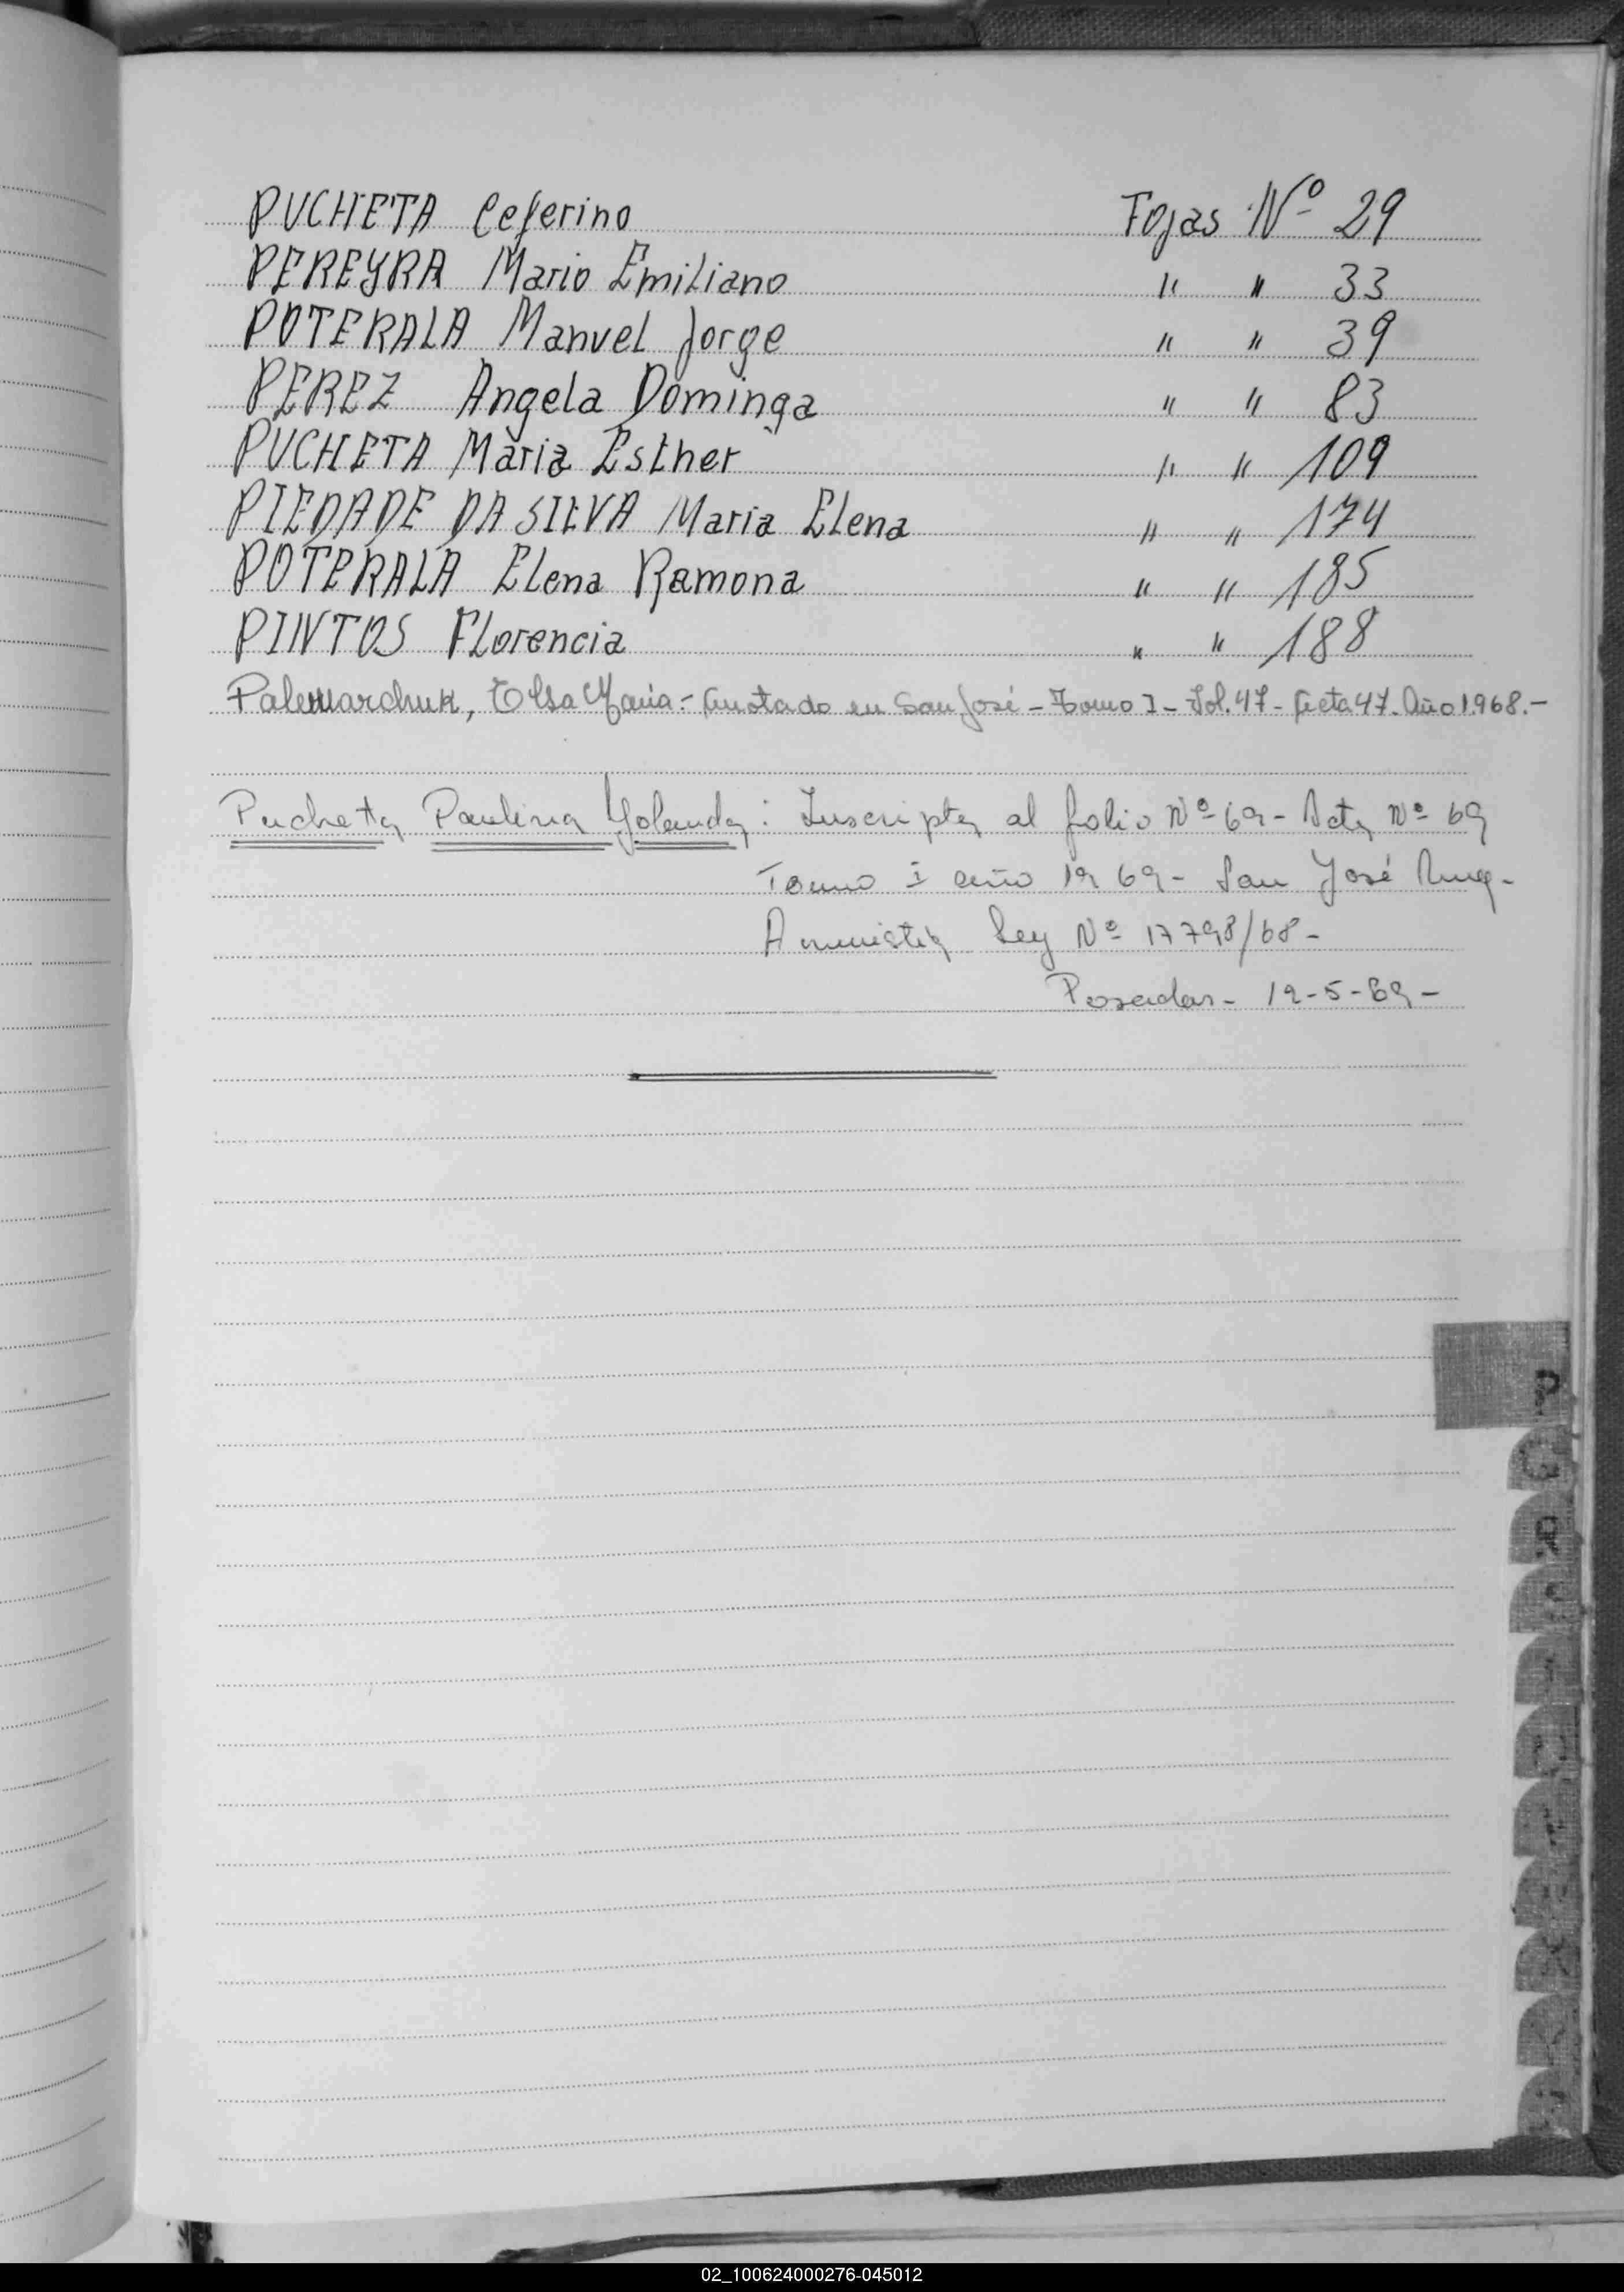 PUCHETA Ceferino Fojas Nº 29
PEREYRA Mario Emiliano " " 33
POTERALA Manuel Jorge " " 39
PEREZ Angela Dominga " " 83
PUCHETA Maria Esther " " 109
PIEDADE DA SILVA Maria Elena " " 174
POTERALA Elena Ramona " " 185
PINTOS Florencia " " 188
Palemarchuk, Elsa Maria - Anotado en San José - Tomo I - Fol. 47 - Acta 47. Año 1.968.-
Pucheta Paulina Yolanda: Inscripta al folio Nº 69 - Acta Nº 69
Tomo I año 1969 - San José
Amnistia Ley Nº 17798/68 -
Posadas - 12-5-69 -
P
02_100624000276-045012